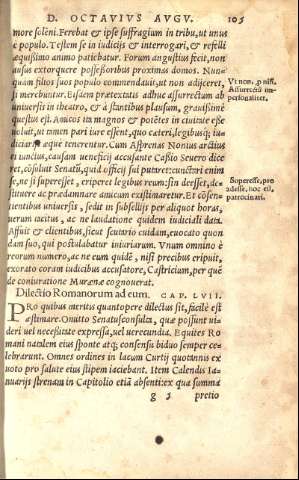 D. OCTAVIVS AVGV. 105
more soleni. Ferebat & ipse suffragium in tribu, ut unus
è populo. Testem se in iudicijs & interrogari, & refelli
æquissimo animo patiebatur. Forum angustius fecit, non
ausus extorquere possessoribus proximas domos. Nun-
quam filios suos populo commendauit, ut non adijceret,
si merebuntur. Eisdem prætextatis adhuc assurrectum ab
uniuersis in theatro, & à stantibus plausum, grauissimè
questus est. Amicos ita magnos & potẽtes in ciuitate esse
uoluit, ut tamen pari iure essent, quo cæteri, legibusq; iu-
diciarijs æquè tenerentur. Cum Asprenas Nonius arctius
ei iunctus, causam ueneficij accusante Cassio Seuero dice
ret, cõsuluit Senatũ, quid officij sui putret: cunctari enim
se, ne si superesset, eriperet legibus reum: sin deesset, de-
stituere ac prædamnare amicum existimaretur. Et cõsen-
tientibus uniuersis, sedit in subsellijs per aliquot horas,
uerum tacitus, ac ne laudatione quidem iudiciali data.
Affuit & clientibus, sicut scutario cuidam, euocato quon
dam suo, qui postulabatur iniuriarum. Vnum omnino è
reorum numero, ac ne eum quidẽ, nisi precibus eripuit,
exorato coram iudicibus accusatore, Castricium, per quẽ
de coniuratione Murænæ cognouerat.
Dilectio Romanorum ad eum. CAP. LVII.
PRO quibus meritis quantopere dilectus sit, facilè est
æstimare. Omitto Senatusconsulta, quæ possunt ui-
deri uel necessitate expressa, uel uerecundia. Equites Ro
mani natalem eius sponte atq; consensu biduo semper ce-
lebrarunt. Omnes ordines in lacum Curtij quotannis ex
uoto pro salute eius stipem iaciebant. Item Calendis Ia-
nuarijs strenam in Capitolio etiã absenti: ex qua summa
g 5 pretio
Assurrectũ im-
personaliter.
Superesse, pro
adesse, noc est,
patrocinari.